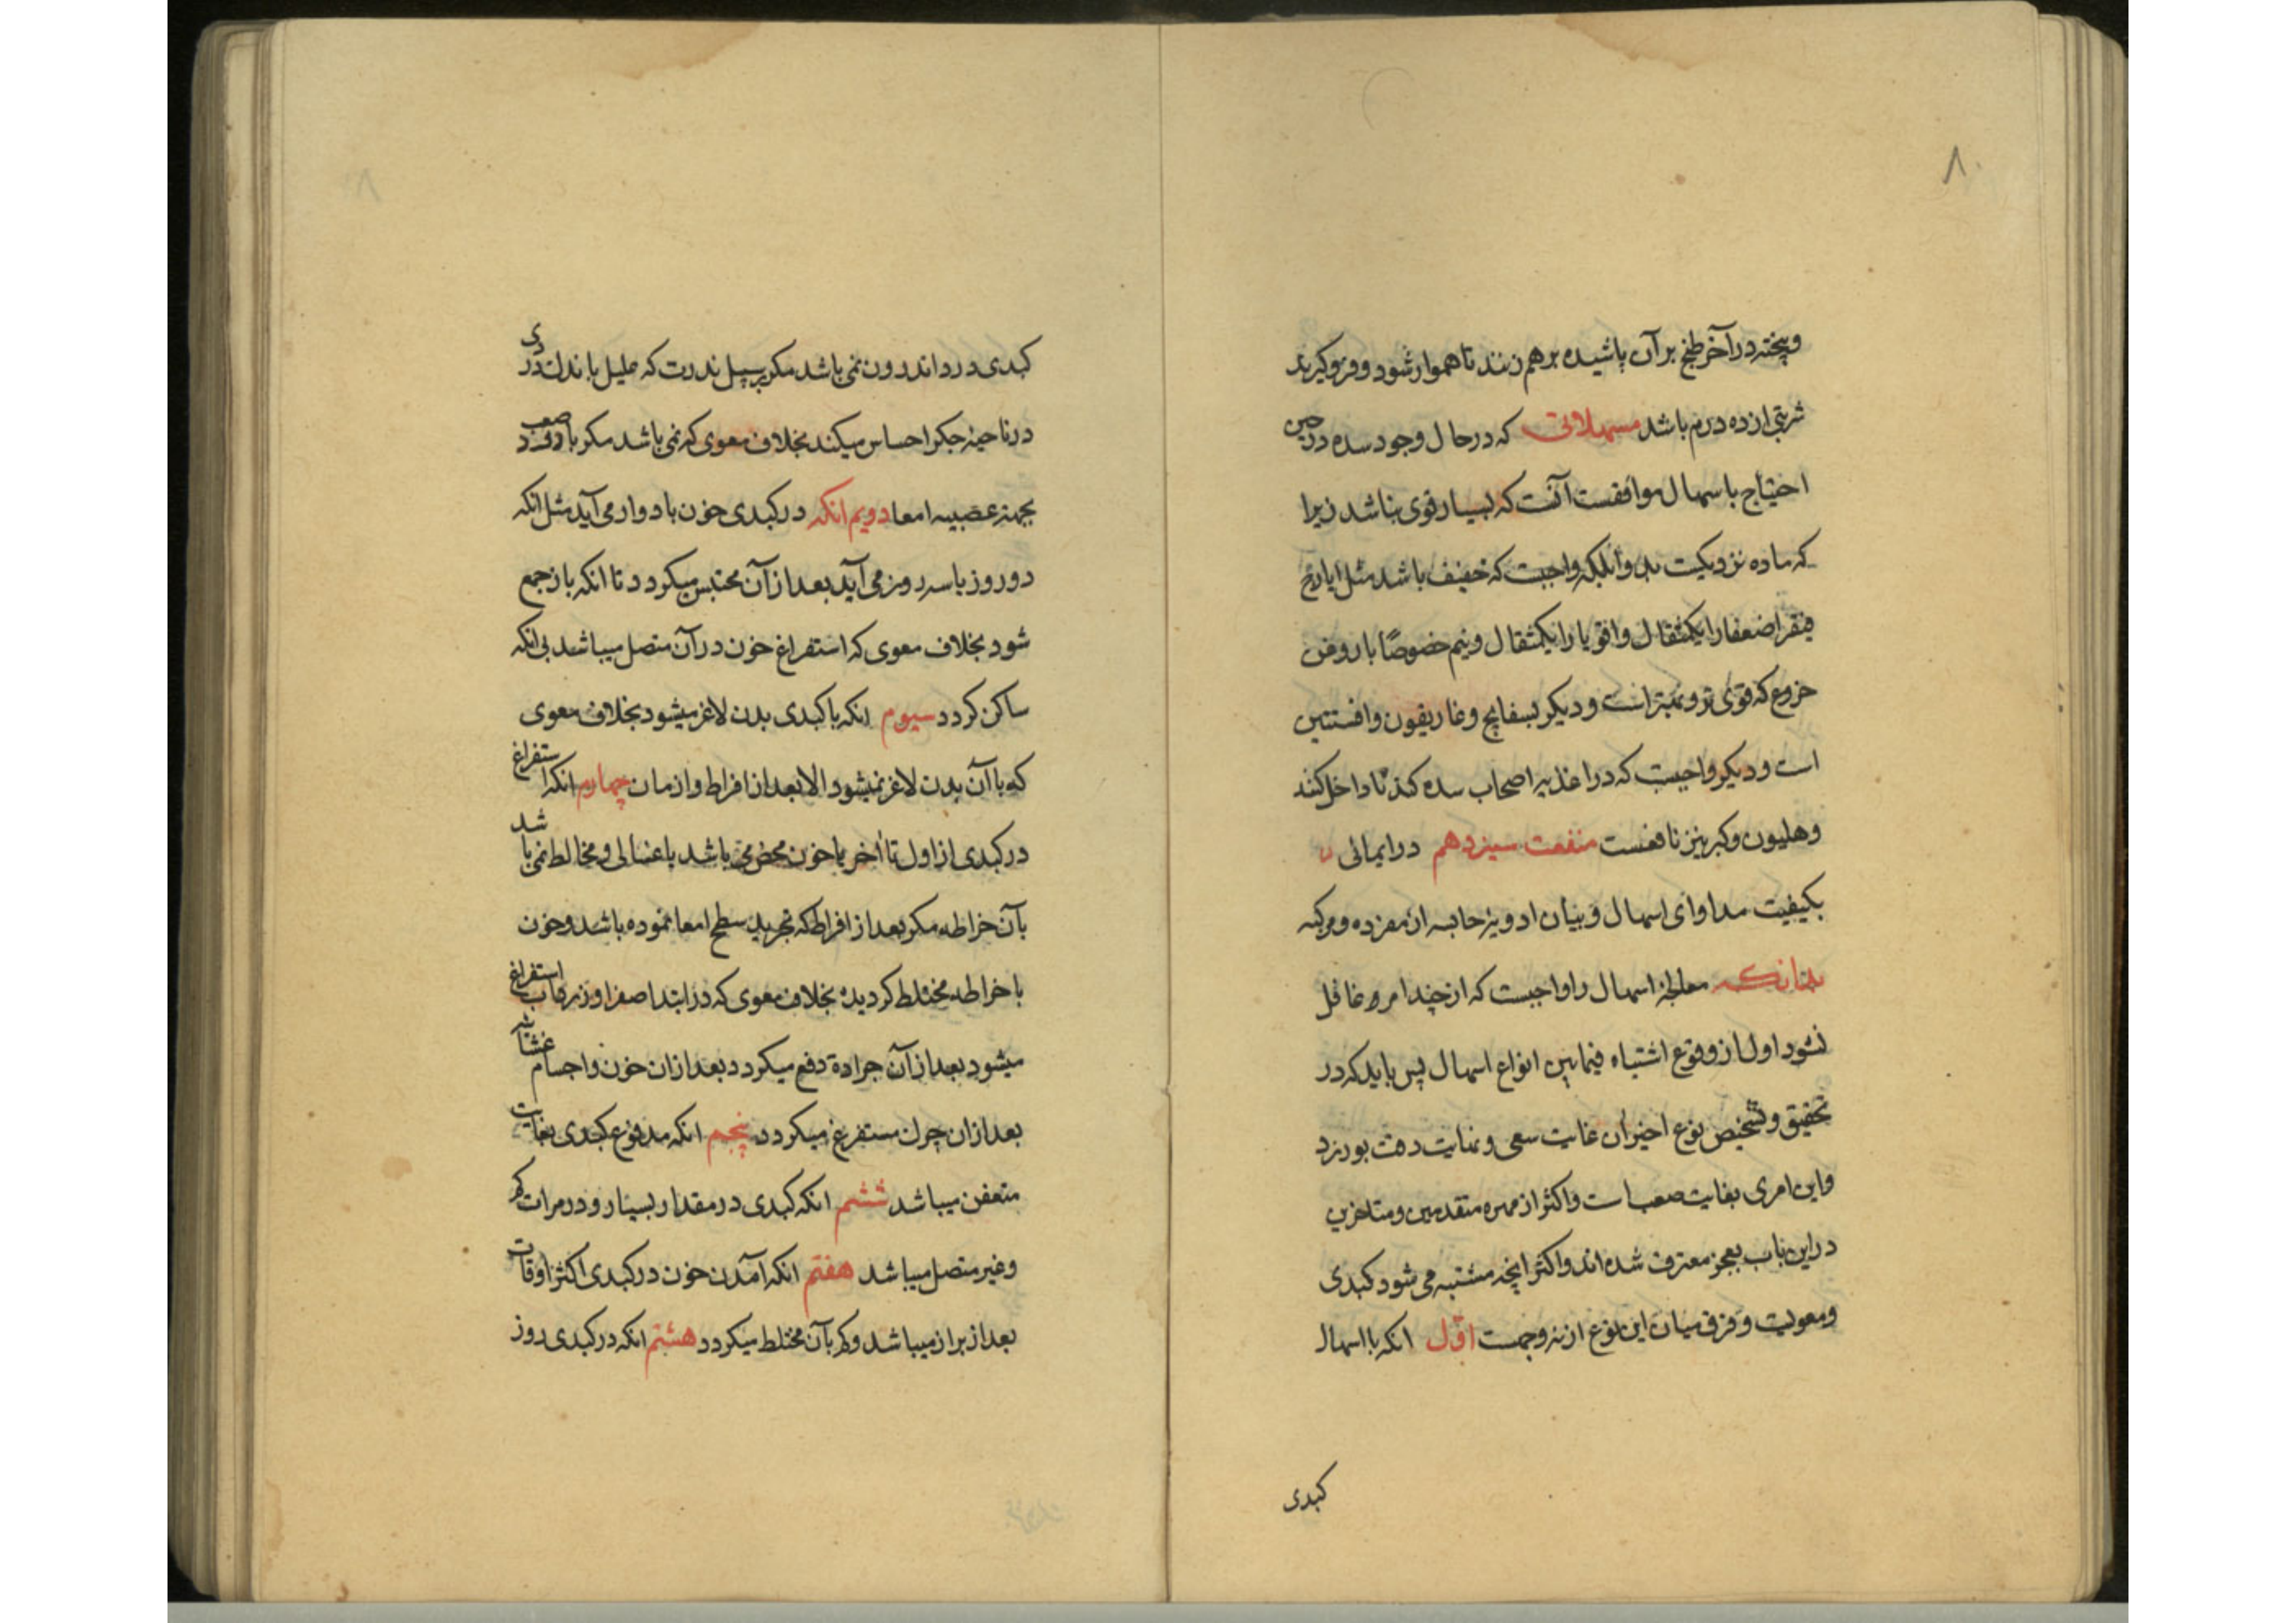 ۸۰
وپخته در آخر طبخ بر آن پاشیده برهم زنند تا هموار شود و فروگیرند
شربتی از ده درم باشد مسهلاتی که در حال وجود سده در حین
احتیاج باسهال موافقست آنست که بسیار قوی نباشد زیرا
که ماده نزدیکست بلکه واجبست که خفیف باشد مثل ایارج
فیقرا ضعفا را یکمثقال واقویا را یکمثقال ونیم خصوصًا با روغن
خروع که قوی تر و است ودیکر بسفایج وغاریقون وافسنتین
است ودیکر واجبست که در اغذیه اصحاب سده کند نا داخل کنند
وهلیون وکبر نیز نافعست منفعت سیزدهم در ایمائی
بکیفیت مداوای اسهال وبیان ادویه حابسه از مفرده ومرکبه
بدانکه معالجهٔ اسهال را واجبست که از چند امر غافل
نشود اول از وقوع اشتباه فیمابین انواع اسهال پس باید که در
تحقیق وتشخیص نوع اخیران غایت سعی ونهایت دقت بورزد
واین امری بغایت صعب است واکثر از مهره متقدمین ومتاخرین
در این باب بعجز معترف شده اند واکثر انچه مشتبه می شود کبدی
ومعویست وفرق میان این نوع از نه وجهست اوّل انکه با اسهال
کبدی
کبدی درد اندرون نمی باشد مکر بسبیل ندرت که علیل باندک دردی
در ناحیهٔ جکر احساس میکند بخلاف معوی که نمی باشد مکر با درد صعب
بجهتهٔ عصبیه امعا دویم انکه در کبدی خون بادوار می آید مثل انکه
دو روز یا سه روز می آید بعد از آن محتبس میکردد تا انکه باز جمع
شود بخلاف معوی که استفراغ خون در آن متصل میباشد بی انکه
ساکن کردد سیوم انکه با کبدی بدن لاغر میشود بخلاف معوی
که با آن بدن لاغر نمیشود الا بعد از افراط وازمان چهارم انکه استفراغ
در کبدی از اول تا آخر یا خون محض می باشد یا غسالی ومخالط نمی باشد
بآن خراطه مکر بعد از افراط که تجرید سطح امعا نموده باشد وخون
با خراطه مختلط کردیده بخلاف معوی که در ابتدا صفرا وزرداب استفراغ
میشود بعد از آن جراده دفع میکردد بعد از ان خون واجسام غشائیه
بعد از ان چون مستفرغ میکردد پنجم انکه مدفوع کبدی بغایت
متعفن میباشد ششم انکه کبدی در مقدار بسیار ودر مرات کم
وغیر متصل میباشد هفتم انکه آمدن خون در کبدی اکثر اوقات
بعد از براز میباشد وکم بآن مختلط میکردد هشتم انکه در کبدی روز